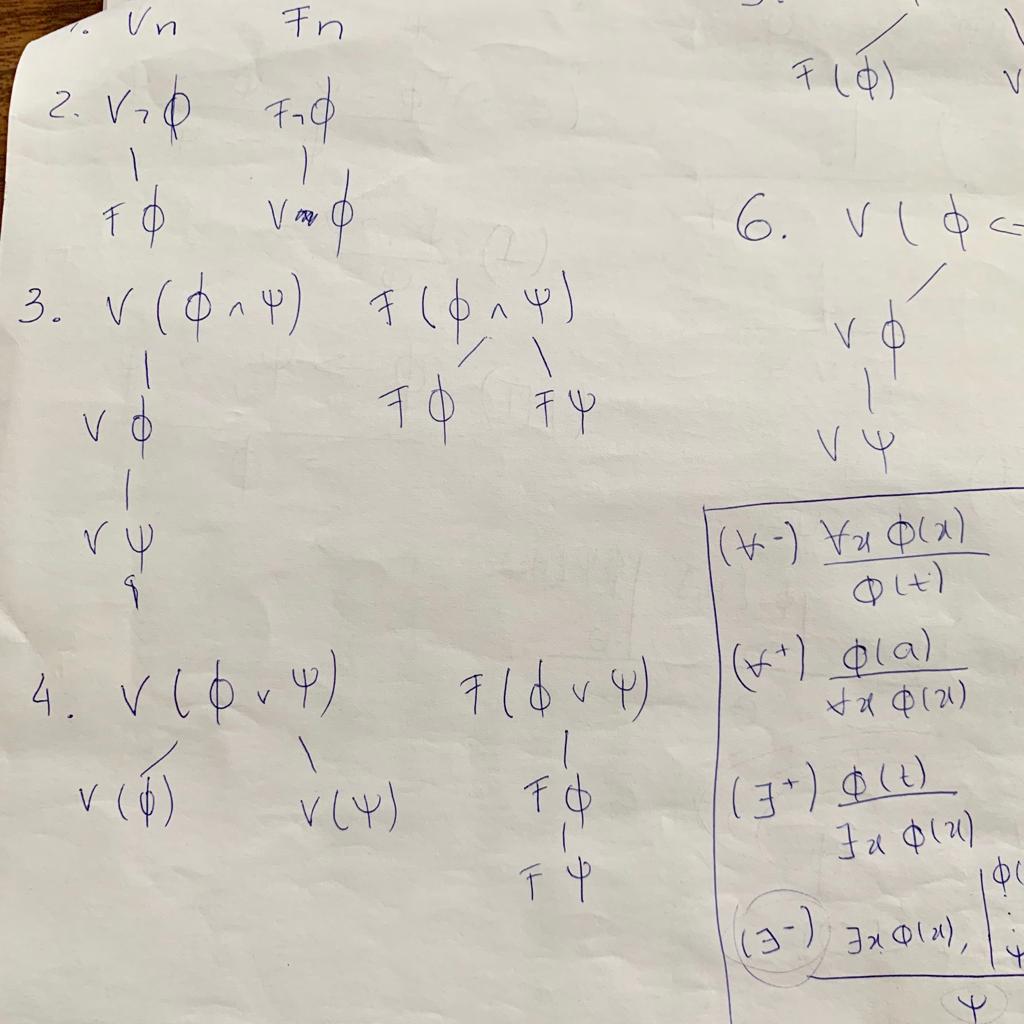 1. Vn Fn
2. V¬ϕ F¬ϕ
Fϕ V ϕ
3. V (ϕ ∧ ψ) F (ϕ ∧ ψ)
V ϕ F ϕ F ψ
V ψ
4. V (ϕ ∨ ψ) F (ϕ ∨ ψ)
V (ϕ) V (ψ) F ϕ
F ψ
F (ϕ) V
6. V ( ϕ ↔
V ϕ
V ψ
(∀⁻) ∀x ϕ(x)
ϕ(t)
(∀⁺) ϕ(a)
∀x ϕ(x)
(∃⁺) ϕ(t)
∃x ϕ(x)
ϕ(
(∃⁻) ∃x ϕ(x), ψ
ψ